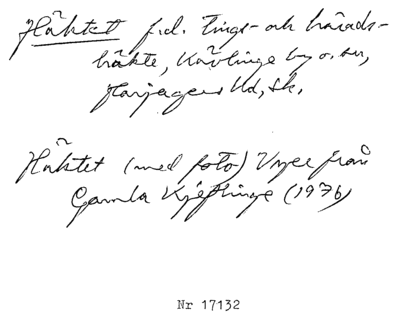 Häktet f.d. tings- och härads-
häkte, Kävlinge by o. sn,
Harjagers hd, Sk.
Häktet (med foto) Vyer från
Gamla Kjeflinge (1976)
Nr 17132